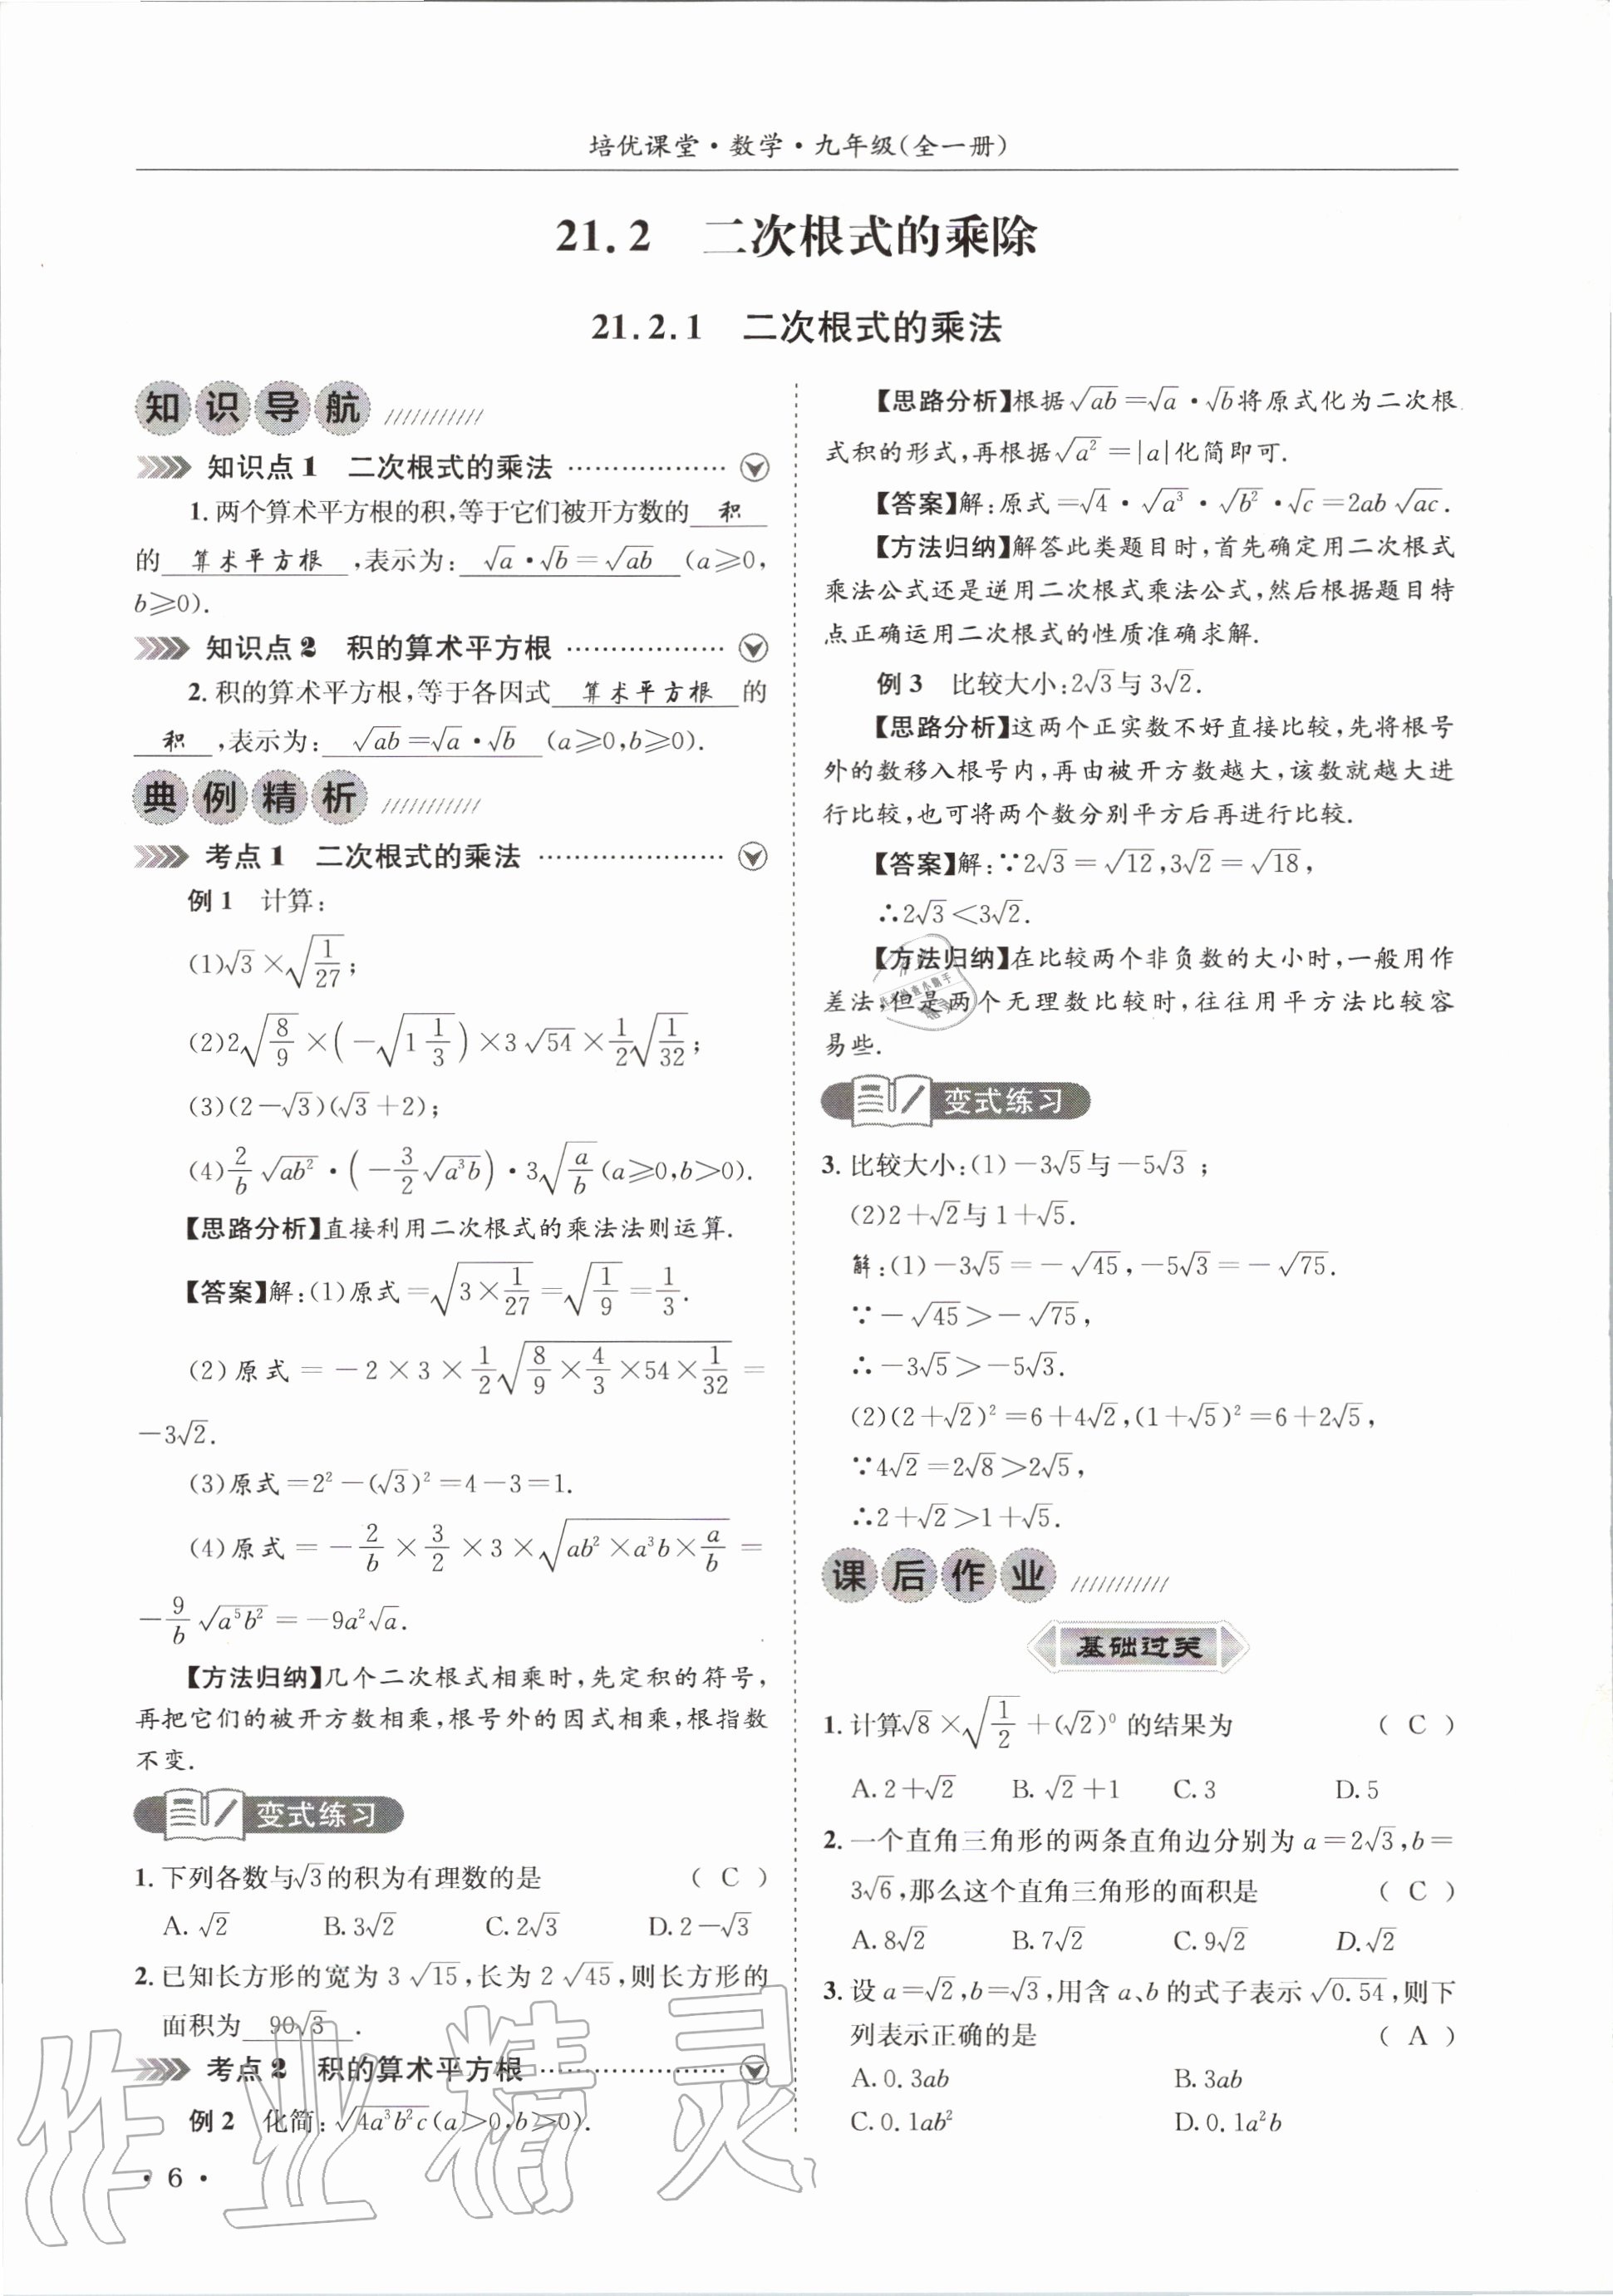 培优课堂·数学·九年级(全一册)
21.2 二次根式的乘除
21.2.1 二次根式的乘法
知识导航
知识点1 二次根式的乘法
1.两个算术平方根的积,等于它们被开方数的 积
的 算术平方根 ,表示为: √a·√b=√ab (a≥0,
b≥0).
知识点2 积的算术平方根
2.积的算术平方根,等于各因式 算术平方根 的
积 ,表示为: √ab=√a·√b (a≥0,b≥0).
典例精析
考点1 二次根式的乘法
例1 计算:
(1)√3×√(1/27);
(2)2√(8/9)×(-√(1 1/3))×3√54×1/2√(1/32);
(3)(2-√3)(√3+2);
(4)2/b√(ab²)·(-3/2√(a³b))·3√(a/b)(a≥0,b>0).
【思路分析】直接利用二次根式的乘法法则运算.
【答案】解:(1)原式=√(3×1/27)=√(1/9)=1/3.
(2)原式=-2×3×1/2√(8/9×4/3×54×1/32)=
-3√2.
(3)原式=2²-(√3)²=4-3=1.
(4)原式=-2/b×3/2×3×√(ab²×a³b×a/b)=
-9/b√(a⁵b²)=-9a²√a.
【方法归纳】几个二次根式相乘时,先定积的符号,
再把它们的被开方数相乘,根号外的因式相乘,根指数
不变.
变式练习
1.下列各数与√3的积为有理数的是 ( C )
A.√2 B.3√2 C.2√3 D.2-√3
2.已知长方形的宽为3√15,长为2√45,则长方形的
面积为 90√3 .
考点2 积的算术平方根
例2 化简:√(4a³b²c)(a>0,b>0).
·6·
【思路分析】根据√ab=√a·√b将原式化为二次根
式积的形式,再根据√a²=|a|化简即可.
【答案】解:原式=√4·√a³·√b²·√c=2ab√ac.
【方法归纳】解答此类题目时,首先确定用二次根式
乘法公式还是逆用二次根式乘法公式,然后根据题目特
点正确运用二次根式的性质准确求解.
例3 比较大小:2√3与3√2.
【思路分析】这两个正实数不好直接比较,先将根号
外的数移入根号内,再由被开方数越大,该数就越大进
行比较,也可将两个数分别平方后再进行比较.
【答案】解:∵2√3=√12,3√2=√18,
∴2√3<3√2.
【方法归纳】在比较两个非负数的大小时,一般用作
差法,但是两个无理数比较时,往往用平方法比较容
易些.
变式练习
3.比较大小:(1)-3√5与-5√3;
(2)2+√2与1+√5.
解:(1)-3√5=-√45,-5√3=-√75.
∵-√45>-√75,
∴-3√5>-5√3.
(2)(2+√2)²=6+4√2,(1+√5)²=6+2√5,
∵4√2=2√8>2√5,
∴2+√2>1+√5.
课后作业
基础过关
1.计算√8×√(1/2)+(√2)⁰的结果为 ( C )
A.2+√2 B.√2+1 C.3 D.5
2.一个直角三角形的两条直角边分别为a=2√3,b=
3√6,那么这个直角三角形的面积是 ( C )
A.8√2 B.7√2 C.9√2 D.√2
3.设a=√2,b=√3,用含a、b的式子表示√0.54,则下
列表示正确的是 ( A )
A.0.3ab B.3ab
C.0.1ab² D.0.1a²b
作业精灵